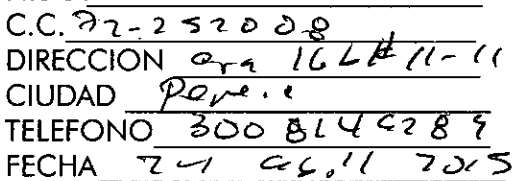 C.C. 72-252008
DIRECCION cra 16 L# 11-11
CIUDAD
TELEFONO 300 8144289
FECHA 24 2015